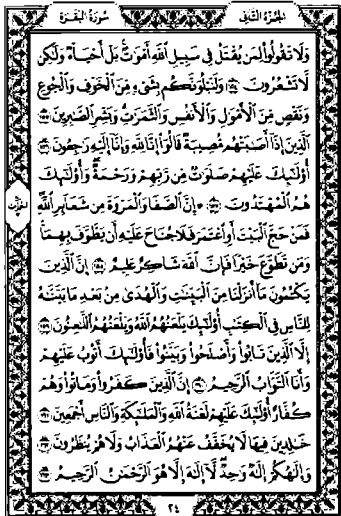 الجزء الثاني
سورة البقرة
وَلَا تَقُولُوا۟ لِمَن يُقْتَلُ فِى سَبِيلِ ٱللَّهِ أَمْوَٰتٌۢ بَلْ أَحْيَآءٌ وَلَٰكِن
لَّا تَشْعُرُونَ ١٥٤ وَلَنَبْلُوَنَّكُم بِشَىْءٍ مِّنَ ٱلْخَوْفِ وَٱلْجُوعِ
وَنَقْصٍ مِّنَ ٱلْأَمْوَٰلِ وَٱلْأَنفُسِ وَٱلثَّمَرَٰتِ وَبَشِّرِ ٱلصَّٰبِرِينَ ١٥٥
ٱلَّذِينَ إِذَآ أَصَٰبَتْهُم مُّصِيبَةٌ قَالُوٓا۟ إِنَّا لِلَّهِ وَإِنَّآ إِلَيْهِ رَٰجِعُونَ ١٥٦
أُو۟لَٰٓئِكَ عَلَيْهِمْ صَلَوَٰتٌ مِّن رَّبِّهِمْ وَرَحْمَةٌ وَأُو۟لَٰٓئِكَ
هُمُ ٱلْمُهْتَدُونَ ١٥٧ ۞ إِنَّ ٱلصَّفَا وَٱلْمَرْوَةَ مِن شَعَآئِرِ ٱللَّهِ
فَمَنْ حَجَّ ٱلْبَيْتَ أَوِ ٱعْتَمَرَ فَلَا جُنَاحَ عَلَيْهِ أَن يَطَّوَّفَ بِهِمَا
وَمَن تَطَوَّعَ خَيْرًا فَإِنَّ ٱللَّهَ شَاكِرٌ عَلِيمٌ ١٥٨ إِنَّ ٱلَّذِينَ
يَكْتُمُونَ مَآ أَنزَلْنَا مِنَ ٱلْبَيِّنَٰتِ وَٱلْهُدَىٰ مِنۢ بَعْدِ مَا بَيَّنَّٰهُ
لِلنَّاسِ فِى ٱلْكِتَٰبِ أُو۟لَٰٓئِكَ يَلْعَنُهُمُ ٱللَّهُ وَيَلْعَنُهُمُ ٱللَّٰعِنُونَ ١٥٩
إِلَّا ٱلَّذِينَ تَابُوا۟ وَأَصْلَحُوا۟ وَبَيَّنُوا۟ فَأُو۟لَٰٓئِكَ أَتُوبُ عَلَيْهِمْ
وَأَنَا ٱلتَّوَّابُ ٱلرَّحِيمُ ١٦٠ إِنَّ ٱلَّذِينَ كَفَرُوا۟ وَمَاتُوا۟ وَهُمْ
كُفَّارٌ أُو۟لَٰٓئِكَ عَلَيْهِمْ لَعْنَةُ ٱللَّهِ وَٱلْمَلَٰٓئِكَةِ وَٱلنَّاسِ أَجْمَعِينَ ١٦١
خَٰلِدِينَ فِيهَا لَا يُخَفَّفُ عَنْهُمُ ٱلْعَذَابُ وَلَا هُمْ يُنظَرُونَ ١٦٢
وَإِلَٰهُكُمْ إِلَٰهٌ وَٰحِدٌ لَّآ إِلَٰهَ إِلَّا هُوَ ٱلرَّحْمَٰنُ ٱلرَّحِيمُ ١٦٣
٢٤